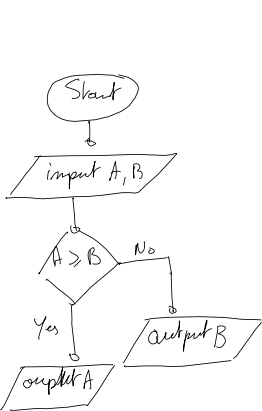 Start
input A, B
A ≥ B
No
Yes
output B
output A